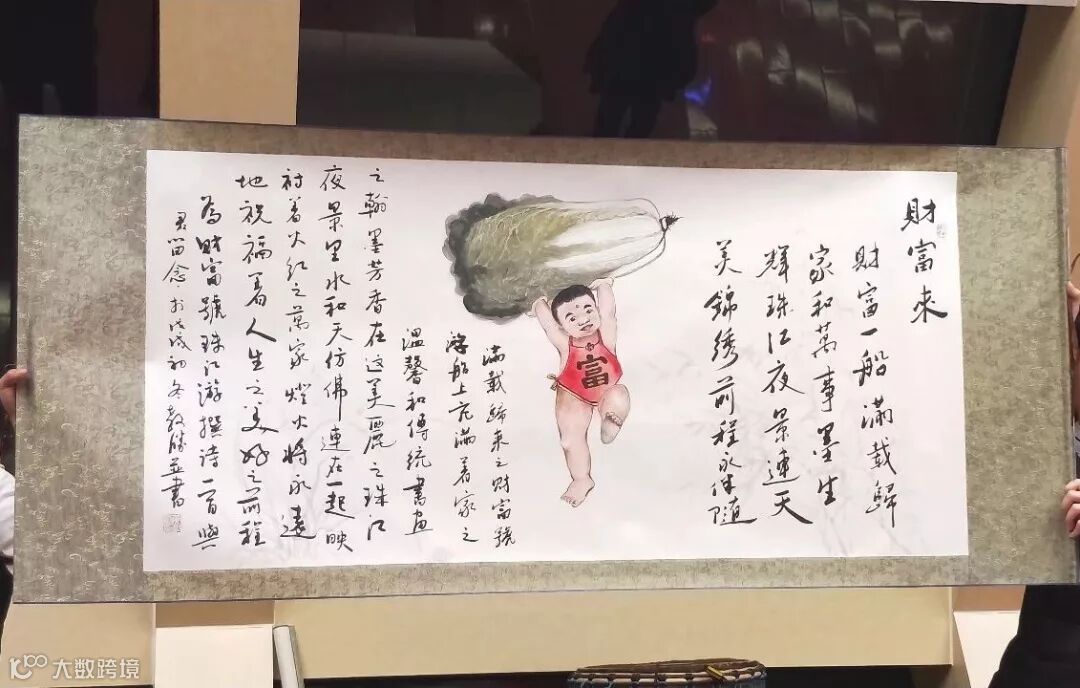 財富來
財富一船滿載歸
家和萬事墨生
輝珠江夜景連天
美錦绣前程永伴隨
富
滿載歸来之財富號
游船上充滿着家之
溫馨和傳統書画
之翰墨芳香在这美麗之珠江
夜景里水和天仿佛連在一起映
衬着火红之萬家燈火將永遠
地祝福着人生之美好之前程
為財富號珠江游撰诗一首與
君留念于戊戌初冬教勝並書
大数跨境